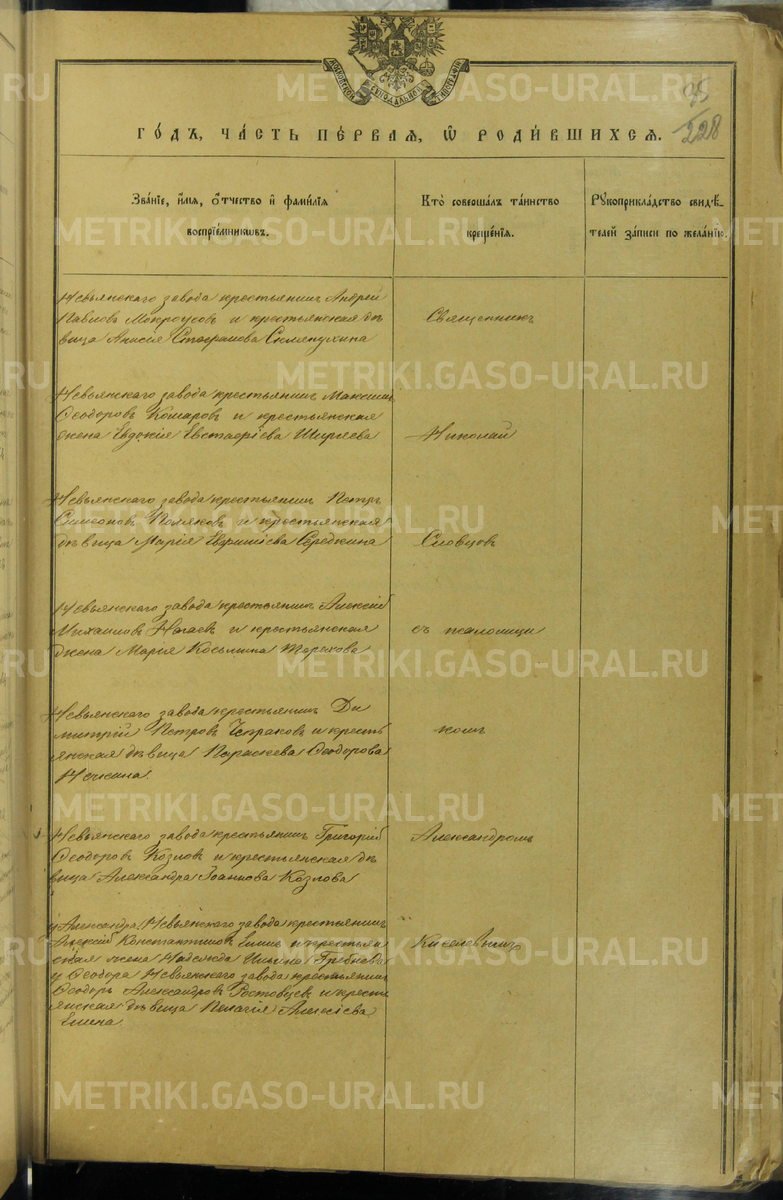 МОСКОВСКОЙ СѴНОДАЛЬНОЙ ТИПОГРАФІИ
95
228
ГО́ДЪ, ЧА́СТЬ ПЕ́РВАЯ, Ѡ҆ РОДИ́ВШИХСЯ.
Зва́нїе, и҆́мя, ѻ҆́тчество и҆ фами́лїя
воспрїе́мникѡвъ.
Кто̀ соверша́лъ та́инство
креще́нїя.
Рꙋкоприкла́дство свидѣ́-
телей за́писи по жела́нїю.
Невьянскаго завода крестьянинъ Андрей
Павловъ Мокроусовъ и крестьянская дѣ
вица Анисія Стефанова
Священникъ
Невьянскаго завода крестьянинъ Максимъ
Ѳеодоровъ Комаровъ и крестьянская
жена Евдокія Евстафіева Ширяева
Николай
Невьянскаго завода крестьянинъ Петръ
Симеоновъ Поляковъ и крестьянская
дѣвица Марія Середкина
Словцовъ
Невьянскаго завода крестьянинъ Алексій
Михаиловъ Нагаевъ и крестьянская
жена Марія Косьмина Терехова
съ псаломщи
Невьянскаго завода крестьянинъ Ди
митрій Петровъ и кресть
янская дѣвица Параскева Ѳеодорова
комъ
Невьянскаго завода крестьянинъ Григорій
Ѳеодоровъ Козловъ и крестьянская дѣ
вица Александра Іоаннова Козлова
Александромъ
у Александра: Невьянскаго завода крестьянинъ
Алексій Константиновъ Елинъ и крестьян
ская жена Надежда Ильина Гребнева
у Ѳеодора Невьянскаго завода крестьянинъ
Ѳеодоръ Александровъ Ростовцевъ и кресть
янская дѣвица Пелагія Алексіева
Елина
Киселевымъ
METRIKI.GASO-URAL.RU